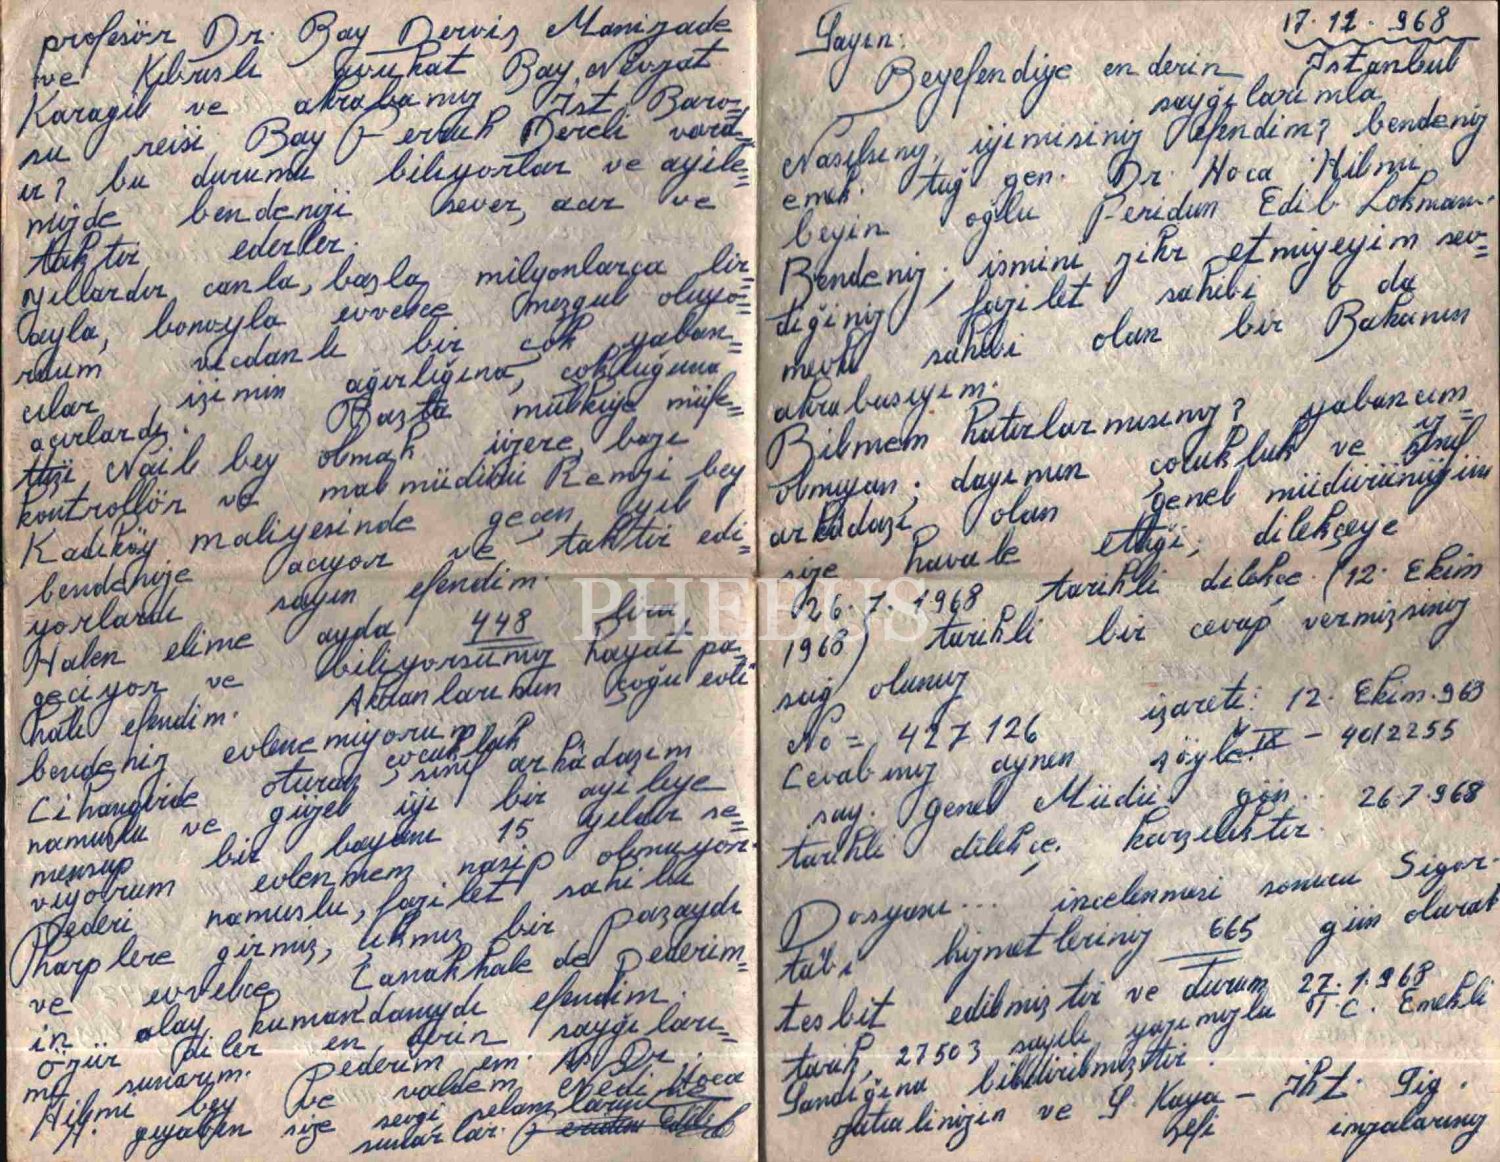 17.12.968
Sayın: İstanbul
Beyefendiye en derin
saygılarımla
Nasılsınız, iyimisiniz efendim? bendeniz
emek. tuğ gen. Dr. Hoca Hilmi
beyin oğlu Feridun Edib Lokman.
Bendeniz; ismini zikr etmiyeyim sev=
diğiniz fazilet sahibi o da
mevki sahibi olan bir Bakanın
akrabasıyım.
Bilmem hatırlarmısınız? yabancım
olmıyan; dayımın çocukluk ve sınıf
arkadaşı olan genel müdürünüzün
size havale ettiği; dilekçeye
26.7.1968 tarihli dilekçe. (12. Ekim
1968) tarihli bir cevap vermişsiniz
sağ olunuz
No = 427126 işareti: 12. Ekim.968
Cevabınız aynen şöyle: IX - 4012255
say. genel Müdü. gön.. 26.7.968
tarihli dilekçe. karşılıktır.
Dosyanı... incelenmesi sonucu Sigor-
tabi hizmetleriniz 665 gün olarak
tesbit edilmiştir ve durum 27.1.968
tarih, 27503 sayılı yazımızla T.C. Emekli
Sandığına bildirilmiştir.
zatıalinizin ve S. Kaya - İht. Sig.
şefi imzalarınız
profesör Dr. Bay Derviş Manizade
ve Kıbrıslı avukat Bay Nevzat
Karagil ve akrabamız İst. Baro=
su reisi Bay Ferruh Dereli vard=
ır? bu durumu biliyorlar ve ayile=
mizde bendenizi sever, acır ve
taktir ederler.
Yıllardır canla, başla, milyonlarca lir=
ayla, bonoyla evvelce meşgul oluyo=
rdum vicdanlı bir çok yaban=
cılar işimin ağırlığına, çokluğuna
acırlardı. Başta mülkiye müfe=
ttişi Naili bey olmak üzere, bazı
kontrollör ve mal müdürü Remzi bey
Kadıköy maliyesinde geçen yıl
bendenize acıyor ve taktir edi=
yorlardı sayın efendim.
Halen elime ayda 448 lira,
geciyor ve biliyorsunuz hayat pa=
halı efendim. Akranlarımın çoğu evli
bendeniz evlenemiyorum
Cihangirde oturan, çocukluk sınıf arkadaşım
namuslu ve güzel iyi bir ayileye
mensup bir bayanı 15 yıldır se=
viyorum evlenmem nasip olmuyor.
Pederi namuslu, fazilet sahibi
Harplere girmiş, çıkmış bir paşaydı
ve evvelce Çanakkale de Pederim=
in alay kumandanıydı efendim.
özür diler en derin saygıları=
mı sunarım. Pederim em. Dr.
Hilmi bey ve valdem Hoca
gıyaben size sevgi selamlarını
sunarlar.